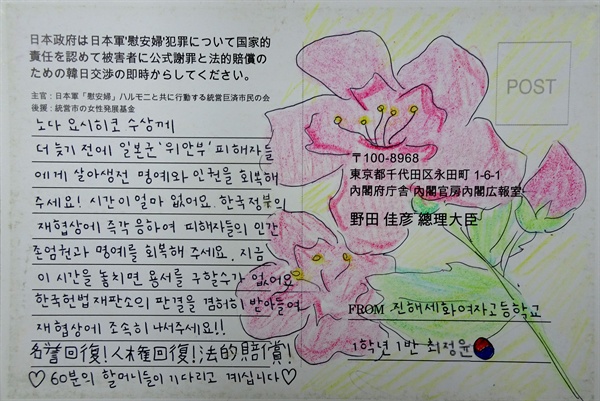 日本政府は日本軍'慰安婦'犯罪について国家的
責任を認めて被害者に公式謝罪と法的賠償の
ための韓日交渉の即時からしてください。
主官 : 日本軍「慰安婦」ハルモニと共に行動する統営巨済市民の会
後援 : 統営市の女性発展基金
노다 요시히코 수상께
더 늦기 전에 일본군 '위안부' 피해자들
에게 살아생전 명예와 인권을 회복해
주세요! 시간이 얼마 없어요. 한국정부의
재협상에 즉각 응하여 피해자들의 인간
존엄권과 명예를 회복해 주세요. 지금
이 시간을 놓치면 용서를 구할수가 없어요
한국헌법재판소의 판결을 겸허히 받아들여
재협상에 조속히 나서주세요!!
名誉回復! 人権回復! 法的賠償!
♡ 60분의 할머니들이 기다리고 계십니다♡
POST
〒100-8968
東京都千代田区永田町 1-6-1
内閣府庁舎 內閣官房内閣広報室
野田 佳彦 總理大臣
FROM 진해세화여자고등학교
1학년 1반 최정윤